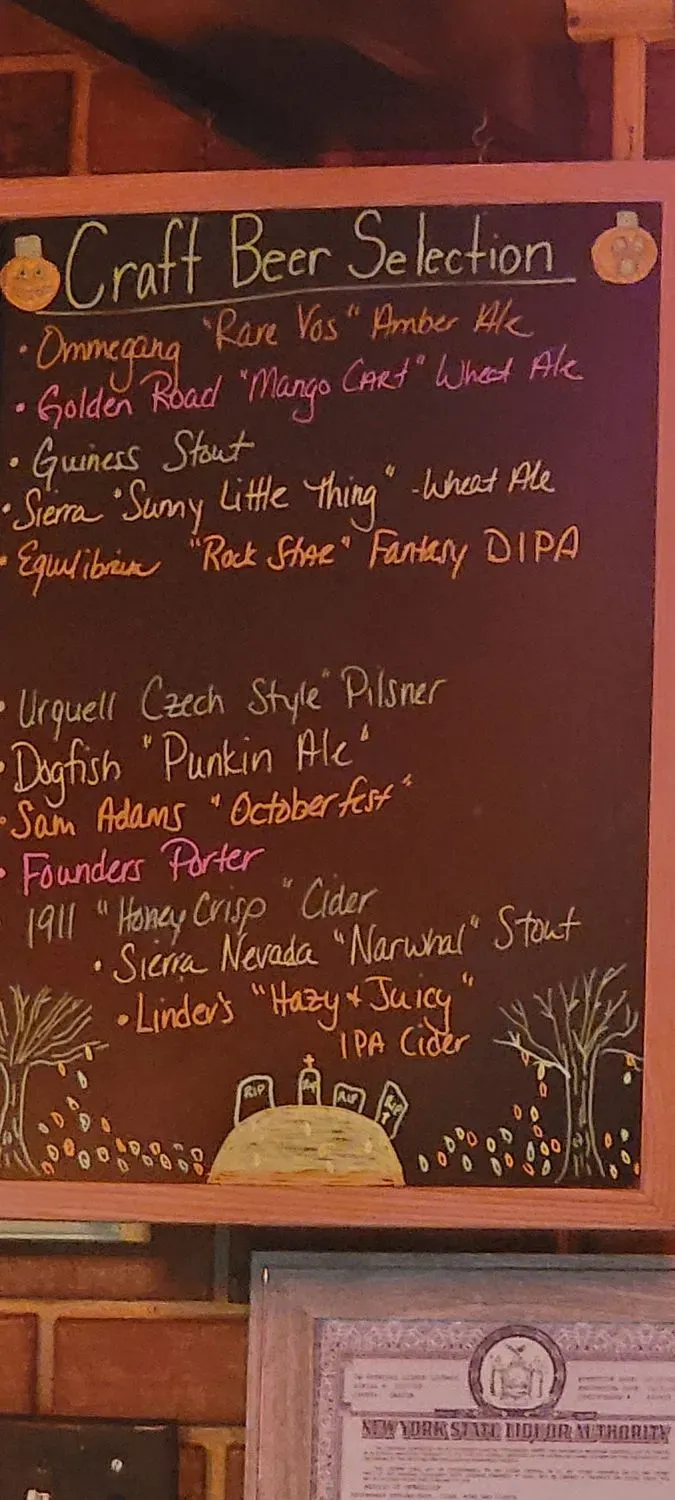 Craft Beer Selection
• Ommegang "Rare Vos" Amber Ale
• Golden Road "Mango CART" Wheat Ale
• Guiness Stout
• Sierra "Sunny Little Thing" -Wheat Ale
• Equilibrium "Rock Star" Fantasy DIPA
• Urquell Czech Style" Pilsner
• Dogfish "Punkin Ale"
• Sam Adams "Octoberfest"
• Founders Porter
1911 "Honey Crisp" Cider
• Sierra Nevada "Narwhal" Stout
• Linder's "Hazy + Juicy"
IPA Cider
RIP RIP RIP RIP
NEW YORK STATE LIQUOR AUTHORITY